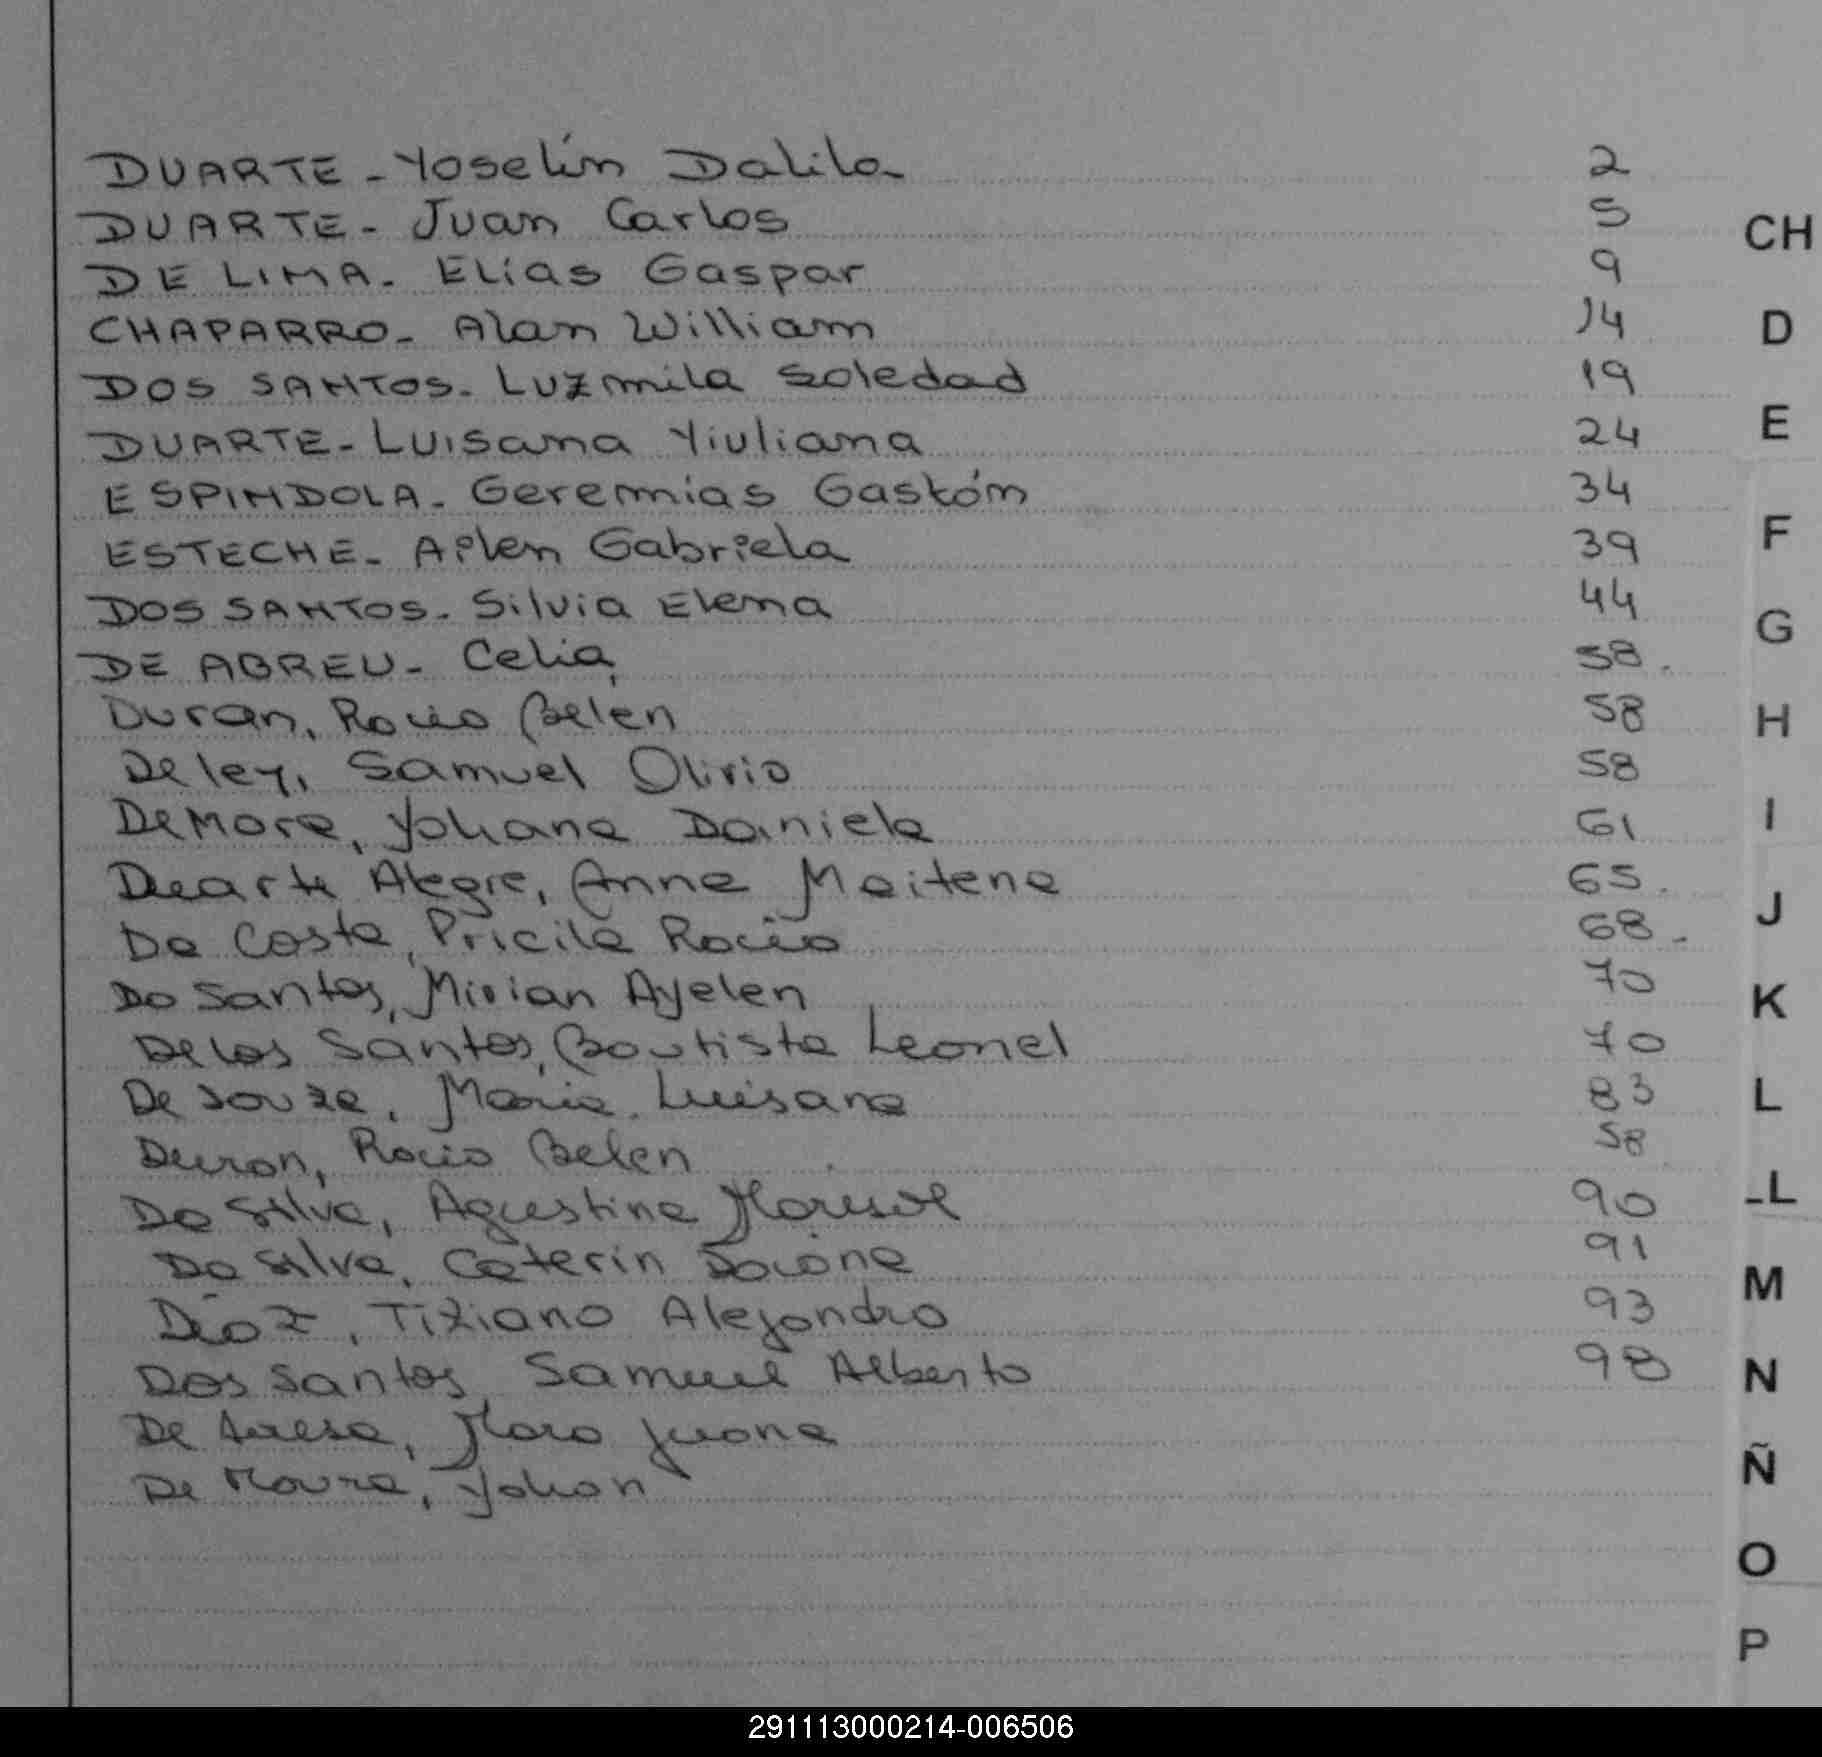 DUARTE - Yoselín Dalila 2
DUARTE - Juan Carlos 5
DE LIMA - Elías Gaspar 9
CHAPARRO - Alan William 14
DOS SANTOS - Luzmila Soledad 19
DUARTE - Luisana Yiuliana 24
ESPINDOLA - Geremias Gastón 34
ESTECHE - Ailen Gabriela 39
DOS SANTOS - Silvia Elena 44
DE ABREU - Celia, 58.
Duran, Rocio Belen 58
De ley, Samuel Olirio 58
De Mora, Yohana Daniela 61
Duarte Alegre, Anna Maitena 65.
Da Costa, Pricila Rocio 68.
Do Santos, Mirian Ayelen 70
De los Santos, Bautista Leonel 70
De Souza, Maria Luisana 83
Duran, Rocio Belen 58
Da Silva, Agustina Marisol 90
Da Silva, Caterin 91
Díaz, Tiziano Alejandro 93
Dos Santos, Samuel Alberto 98
De Juana
De Moura, Yohan
CH
D
E
F
G
H
I
J
K
L
LL
M
N
Ñ
O
P
291113000214-006506